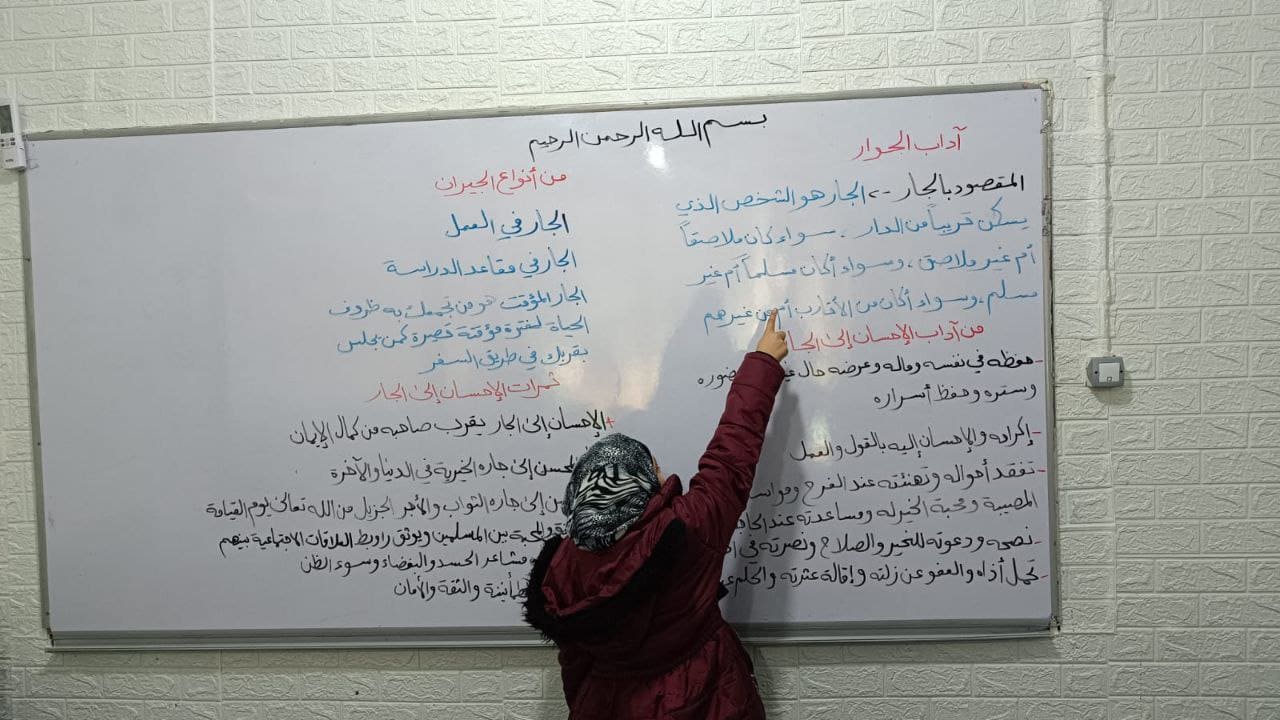 بسم الله الرحمن الرحيم
آداب الجوار
المقصود بالجار -> الجار هو الشخص الذي
يسكن قريباً من الدار ، سواء كان ملاصقاً
أم غير ملاصق ، وسواء أكان مسلماً أم غير
مسلم ، وسواء أكان من الأقارب أم من غيرهم
من آداب الإحسان إلى الجار
- حفظه في نفسه وماله وعرضه حال
وستره وحفظ أسراره
- إكرامه والإحسان إليه بالقول والعمل
- تفقد أحواله وتهنئته عند الفرح
المصيبة ومحبة الخير له ومساعدته عند
- نصحه ودعوته للخير والصلاح ونصرته في
- تحمل أذاه والعفو عن زلته وإقالة عثرته والحلم
من أنواع الجيران
الجار في العمل
الجار في مقاعد الدراسة
الجار المؤقت هو من تجمعك به ظروف
الحياة لفترة مؤقتة قصيرة كمن يجلس
بقربك في طريق السفر
ثمرات الإحسان إلى الجار
+ الإحسان إلى الجار يقرب صاحبه من كمال الإيمان
المحسن إلى جاره الخيرية في الدنيا والآخرة
إلى جاره الثواب والأجر الجزيل من الله تعالى يوم القيامة
والمحبة بين المسلمين ويوثق روابط العلاقات الاجتماعية بينهم
مشاعر الحسد والبغضاء وسوء الظن
والثقة والأمان